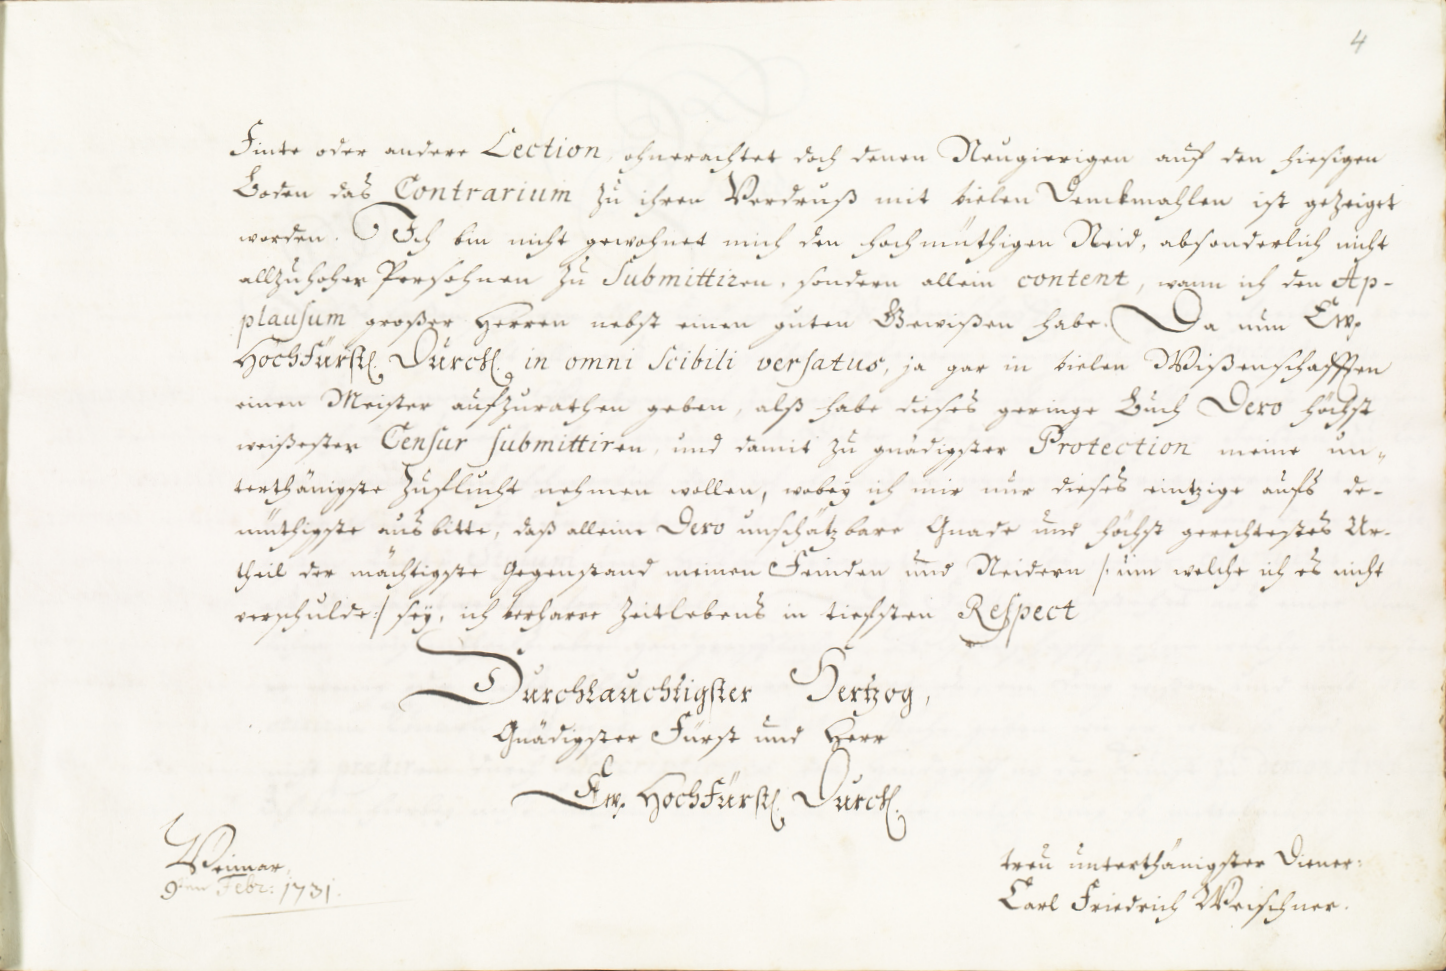 4
Finte oder andere Lection, ohnerachtet doch denen Neugierigen auf den hiesigen
Boden das Contrarium zu ihren Verdruß mit vielen Denckmahlen ist gezeiget
worden. Ich bin nicht gewohnet mich den hochmüthigen Neid, absonderlich nicht
allzuhoher Persohnen zu submittiren, sondern allein content, wann ich den Ap-
plausum großer Herren nebst einen guten Gewißen habe. Da nun Ew.
HochFürstl. Durchl. in omni scibili versatus, ja gar in vielen Wißenschafften
einen Meister aufzurathen geben, alß habe dieses geringe Buch Dero höchst
weißester Censur submittiren, und damit zu gnädigster Protection meine un-
terthänigste Zuflucht nehmen wollen, wobey ich mir nur dieses eintzige aufs de-
müthigste ausbitte, daß alleine Dero unschätzbare Gnade und höchst gerechtestes Ur-
theil der mächtigste Gegenstand meinen Feinden und Neidern /: üm welche ich es nicht
verschulde :/ sey, ich verharre Zeitlebens in tiefsten Respect
Durchlauchtigster Hertzog,
Gnädigster Fürst und Herr
Ew. HochFürstl. Durchl.
Weimar,
9ten Febr: 1731.
treu unterthänigster Diener:
Carl Friedrich Weischner.